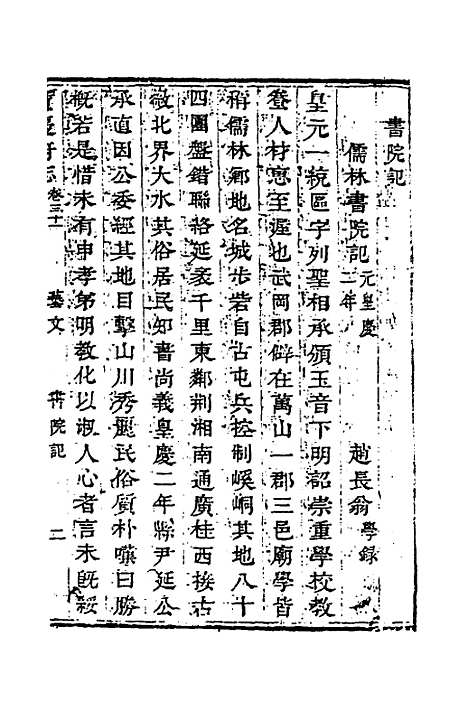 書院記
儒林書院記 元皇慶二年 趙長翁 學錄
皇元一統區宇列聖相承頒玉音下明詔崇重學校教
養人材恩至渥也武岡郡僻在萬山一郡三邑廟學皆
稱儒林鄉地名城步砦自古屯兵控制峒其地八十
四團盤錯聯絡延袤千里東鄰荆湘南通廣桂西接古
敘北界大水其俗居民知書尚義皇慶二年縣尹延公
承直因公委經其地目擊山川秀麗民俗質朴嘆曰勝
槪若是惜未有申孝弟明教化以淑人心者言未旣綏
卷三十一 藝文 書院記 二